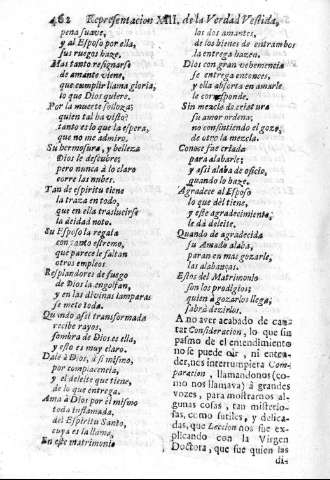 462 Representacion XIII. de la Verdad Vestida,
pena suave,
y al Esposo por ella,
sus ruegos haze.
Mas tanto resignarse
de amante viene,
que cumplir llama gloria,
lo que Dios quiere.
Por la muerte solloza;
quien tal ha visto?
tanto es lo que la espera,
que no me admiro.
Su hermosura, y belleza
Dios le descubre;
pero nunca à lo claro
corre las nubes.
Tan de espiritu tiene
la traza en todo,
que en ella traslucirse
la deidad noto.
Su Esposo la regala
con tanto estremo,
que parece le faltan
otros empleos.
Resplandores de fuego
de Dios la engolfan,
y en las divinas lamparas
se mete toda.
Quando assi transformada
recibe rayos,
sombra de Dios es ella,
y esto es muy claro.
Dale à Dios, à si mismo,
por complacencia,
y el deleite que tiene,
de lo que entrega.
Ama à Dios por el mismo
toda inflamada,
del Espiritu Santo,
cuya es la llama.
En este matrimonio
los dos amantes,
de los bienes de entrambos
la entrega hazen.
Dios con gran vehemencia
se entrega entonces,
y ella absorta en amarle
le corresponde.
Sin mezcla de criatura
su amor ordena;
no consintiendo el gozo,
de otro la mezcla.
Conoce fue criada
para alabarle;
y assi alaba de oficio,
quando lo haze.
Agradece al Esposo
lo que dèl tiene,
y este agradecimiento,
le dà deleite.
Quando de agradecida
su Amado alaba,
paran en mas gozarle,
las alabanças.
Estos del Matrimonio
son los prodigios;
quien à gozarlos llega,
sabrà dezirlos.
A no aver acabado de can-
tar Consideracion, lo que sin
pasmo de el entendimiento
no se puede oìr, ni enten-
der, nos interrumpiera Com-
paracion, llamandonos (co-
mo nos llamava) à grandes
vozes, para mostrarnos al-
gunas cosas, tan misterio-
sas, como sutiles, y delica-
das, que Leccion nos fue ex-
plicando con la Virgen
Doctora, que fue quien las
di-